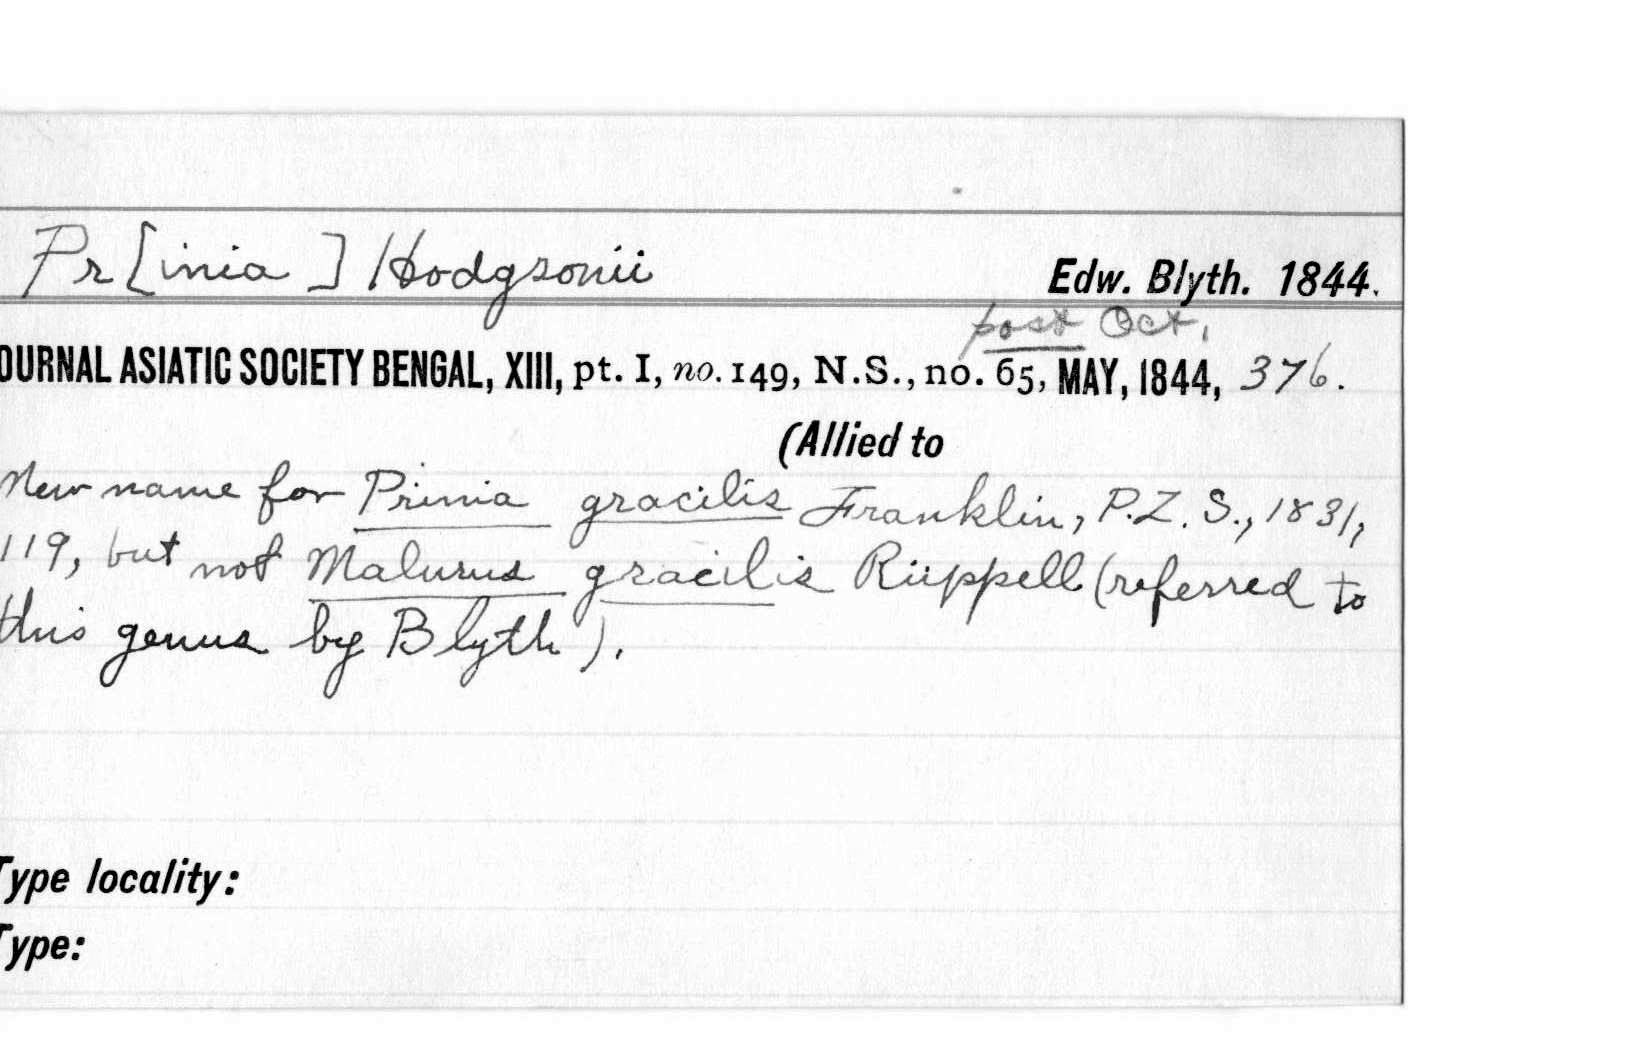 Pr[inia] Hodgsonii
Edw. Blyth. 1844.
post Oct.
OURNAL ASIATIC SOCIETY BENGAL, XIII, pt. I, no. 149, N.S., no. 65, MAY, 1844, 376.
(Allied to
New name for Prinia gracilis Franklin, P.Z.S., 1831,
119, but not Malurus gracilis Rüppell (referred to
this genus by Blyth).
Type locality:
Type: